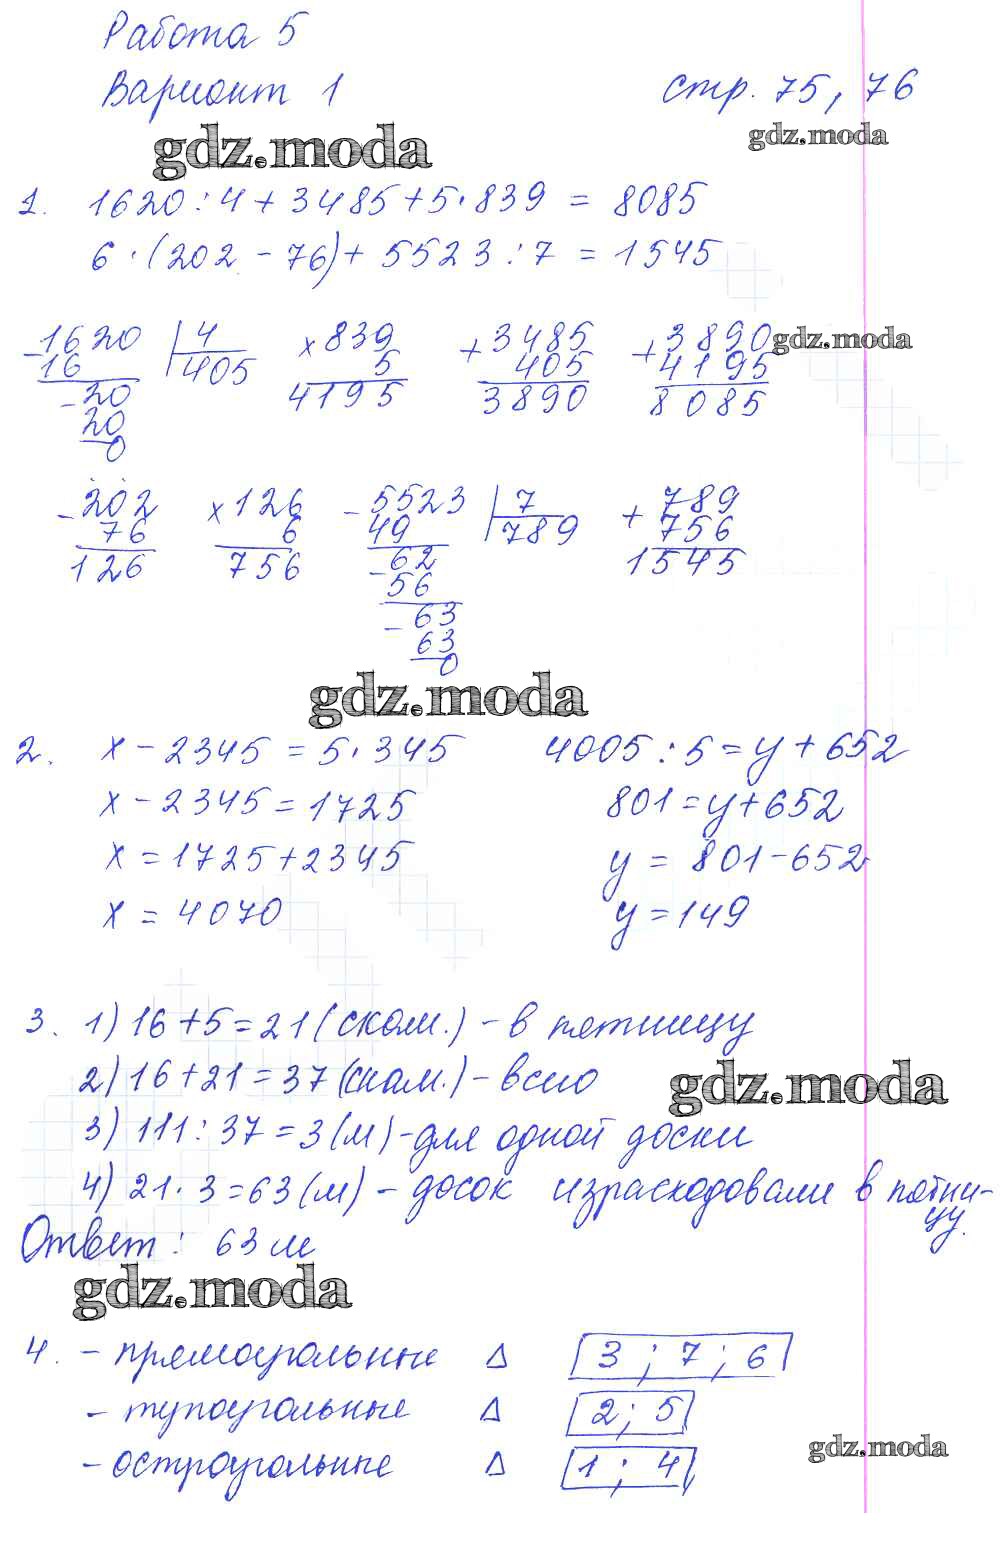 Работа 5
Вариант 1 стр. 75, 76
gdz.moda gdz.moda
1. 1620 : 4 + 3485 + 5 · 839 = 8085
6 · (202 - 76) + 5523 : 7 = 1545
- 1620 | 4 × 839 + 3485 + 3890 gdz.moda
16 405 5 405 4195
- 20 4195 3890 8085
20
0
- 202 × 126 - 5523 | 7 + 789
76 6 49 789 756
126 756 - 62 1545
56
- 63
63
0
gdz.moda
2. x - 2345 = 5 · 345 4005 : 5 = y + 652
x - 2345 = 1725 801 = y + 652
x = 1725 + 2345 y = 801 - 652
x = 4070 y = 149
3. 1) 16 + 5 = 21 (скам.) - в пятницу
2) 16 + 21 = 37 (скам.) - всего
gdz.moda
3) 111 : 37 = 3 (м) - для одной доски
4) 21 · 3 = 63 (м) - досок израсходовали в пятни-
цу.
Ответ : 63 м
gdz.moda
4. - прямоугольные Δ 3 ; 7 ; 6
- тупоугольные Δ 2 ; 5
- остроугольные Δ 1 ; 4
gdz.moda